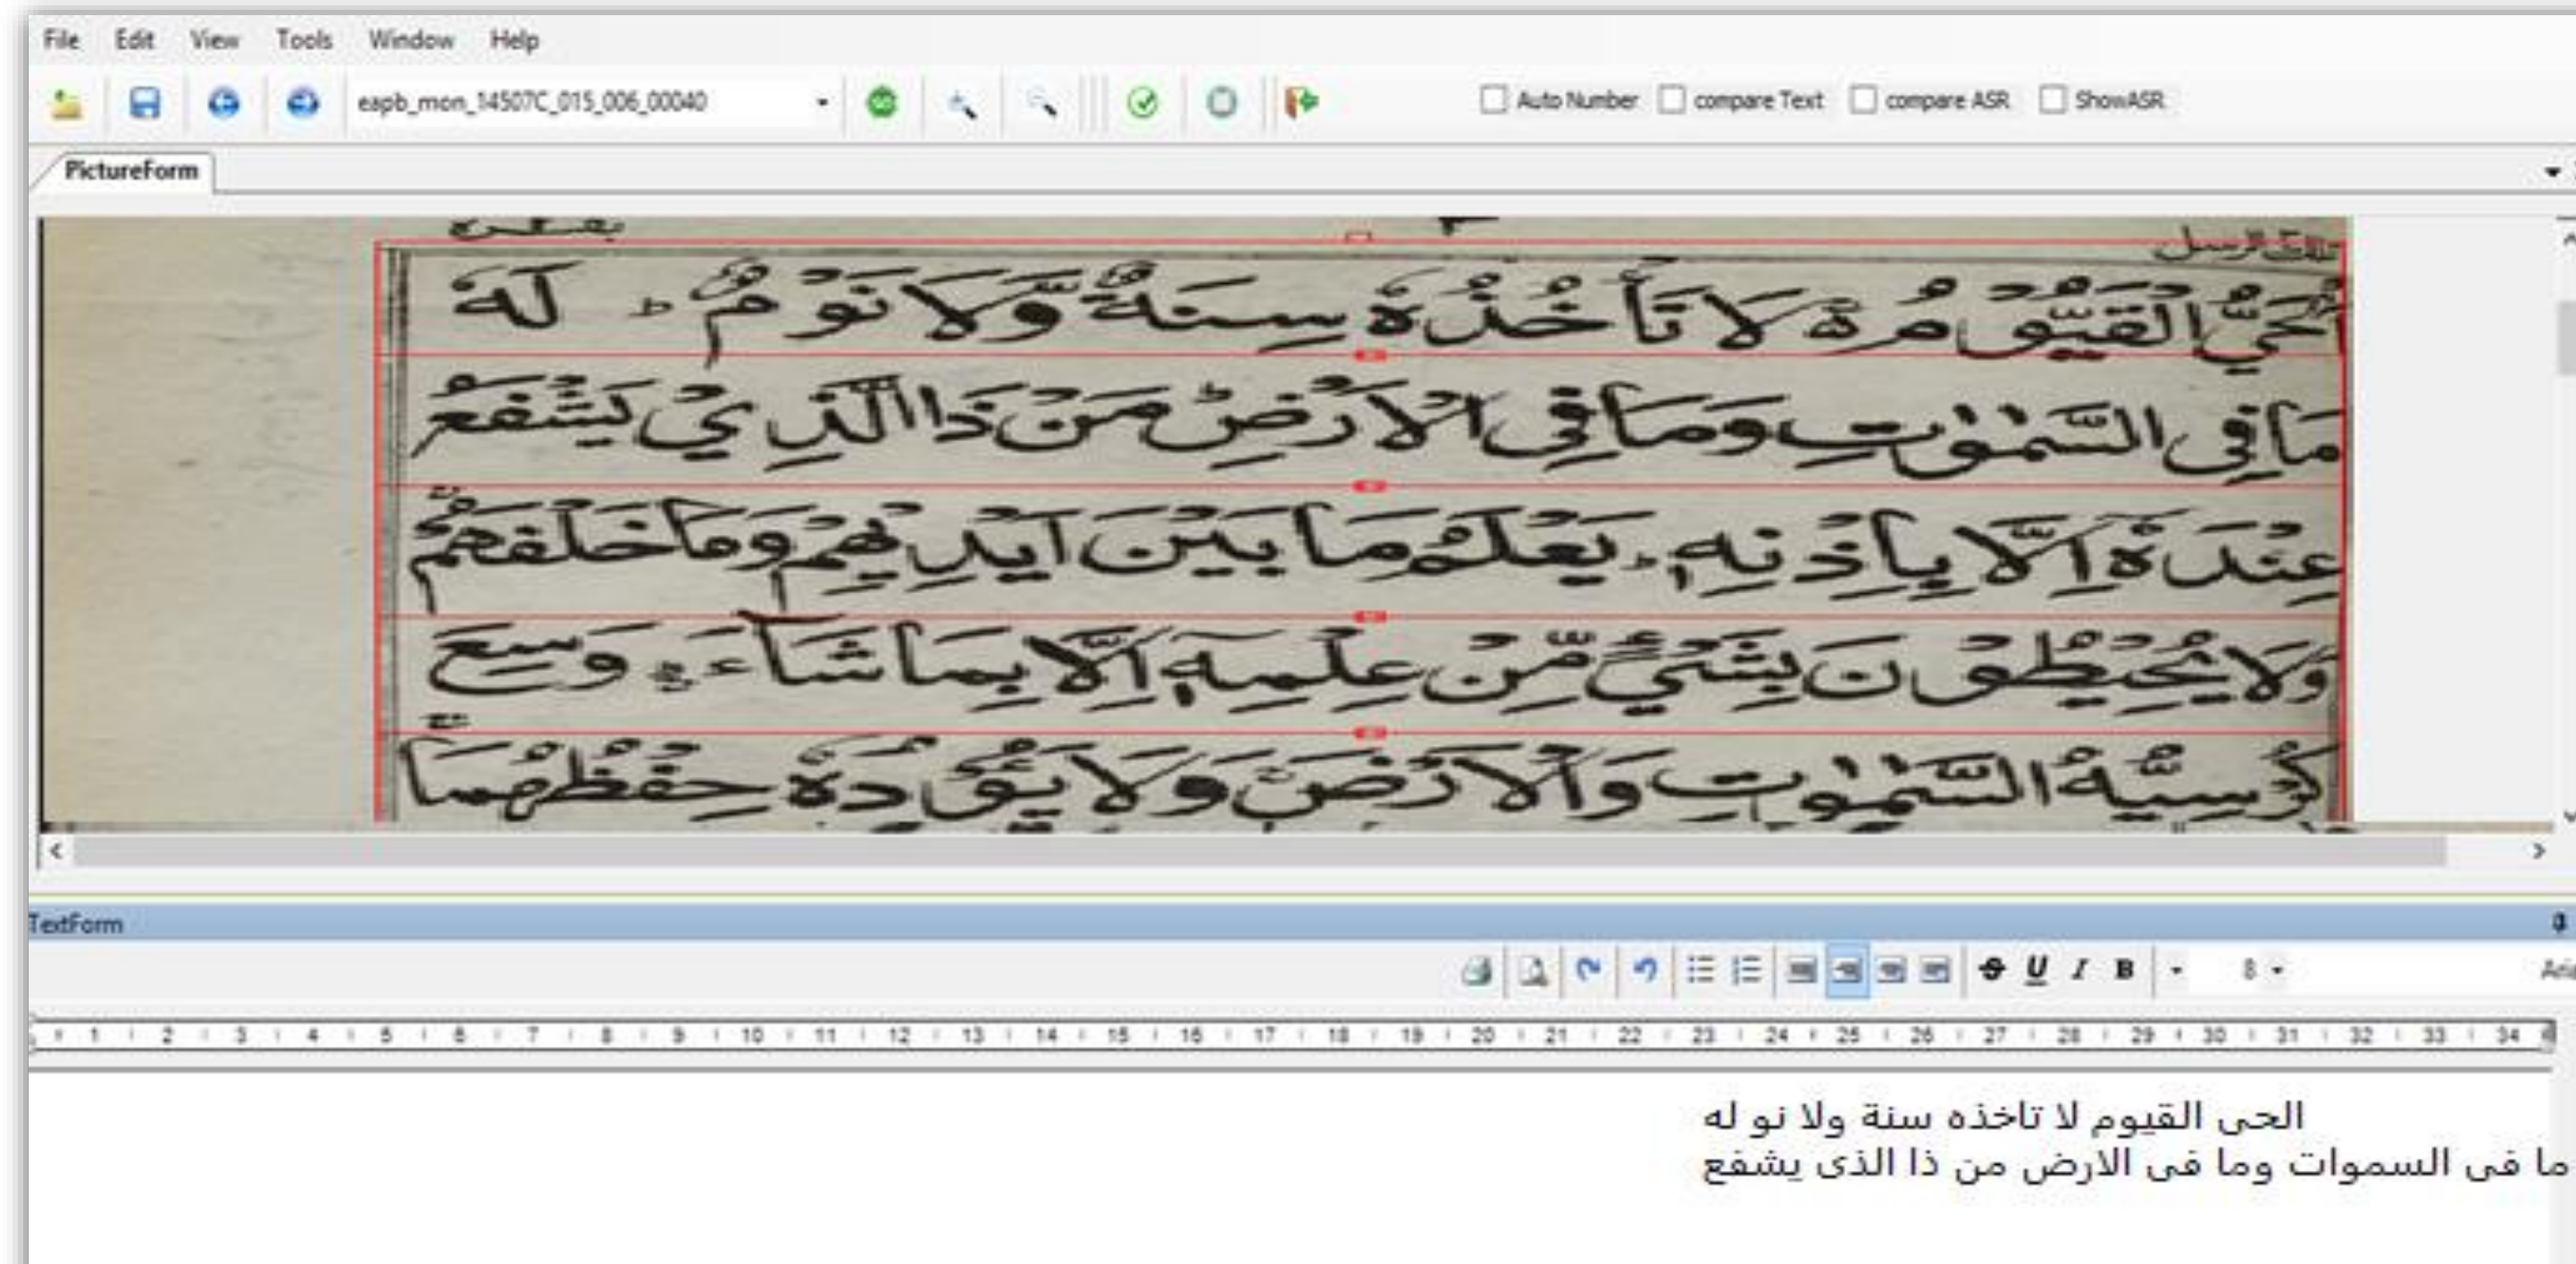 File Edit View Tools Window Help
eapb_mon_14507C_015_006_00040 Auto Number compare Text compare ASR ShowASR
PictureForm
تلك الرسل
اَلْحَيُّ الْقَيُّوْمُ ەۚ لَا تَأْخُذُهٗ سِنَةٌ وَّلَا نَوْمٌ ؕ لَهٗ
مَا فِى السَّمٰوٰتِ وَمَا فِى الْاَرْضِؕ مَنْ ذَا الَّذِيْ يَشْفَعُ
عِنْدَهٗ اِلَّا بِاِذْنِهٖ ؕ يَعْلَمُ مَا بَيْنَ اَيْدِيْهِمْ وَمَا خَلْفَهُمْ
وَلَا يُحِيْطُوْنَ بِشَيْءٍ مِّنْ عِلْمِهٖٓ اِلَّا بِمَا شَآءَ ۚ وَسِعَ
كُرْسِيُّهُ السَّمٰوٰتِ وَالْاَرْضَ وَلَا يَئُوْدُهٗ حِفْظُهُمَا
TextForm
S U I B 8 Aria
1 2 3 4 5 6 7 8 9 10 11 12 13 14 15 16 17 18 19 20 21 22 23 24 25 26 27 28 29 30 31 32 33 34
الحى القيوم لا تاخذه سنة ولا نو له
ما فى السموات وما فى الارض من ذا الذى يشفع